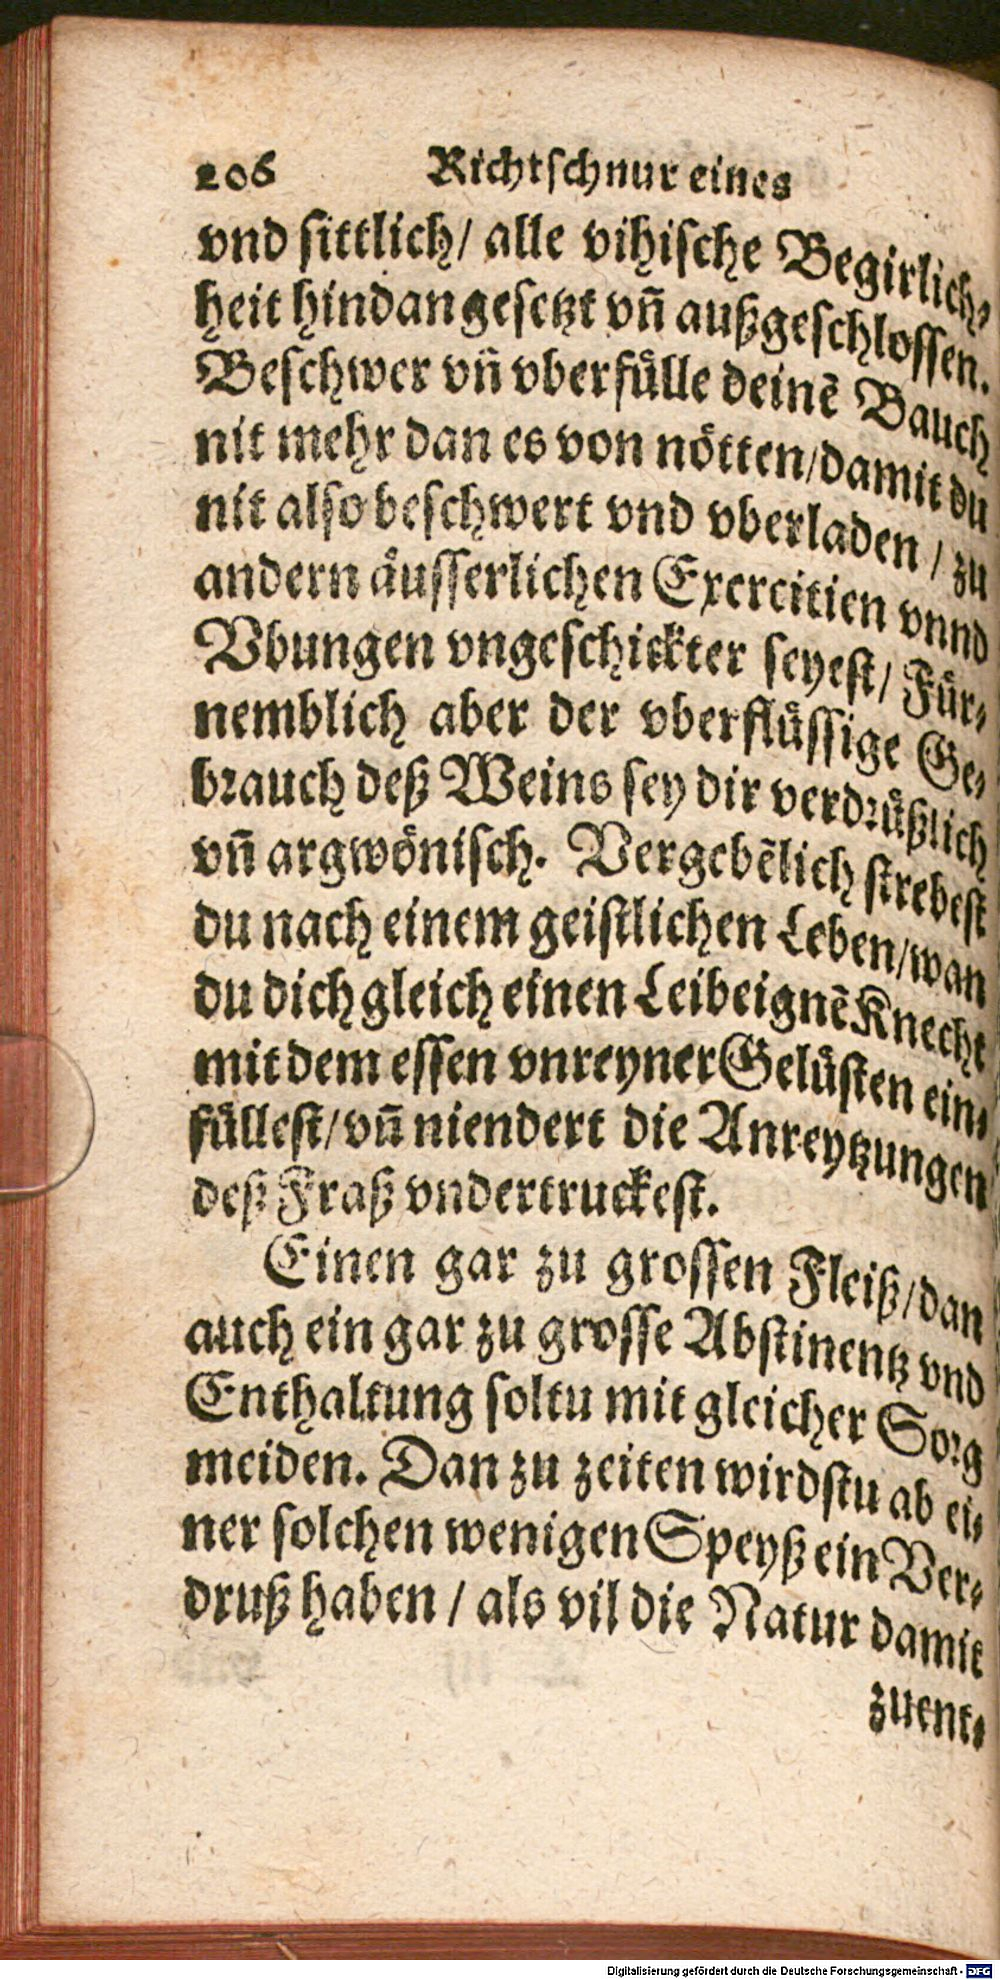 206 Richtschnur eines
vnd sittlich/ alle vihische Begirlich-
heit hindangesetzt vñ außgeschlossen.
Beschwer vñ vberfülle deinẽ Bauch
nit mehr dan es von nötten/damit du
nit also beschwert vnd vberladen / zu
andern äusserlichen Exercitien vnnd
Vbungen vngeschickter seyest/ Für-
nemblich aber der vberflüssige Ge-
brauch deß Weins sey dir verdrüßlich
vñ argwönisch. Vergebẽlich strebest
du nach einem geistlichen Leben/wan
du dich gleich einen Leibeignẽ Knecht
mit dem essen vnreyner Gelüsten ein-
füllest/vñ niendert die Anreytzungen
deß Fraß vndertruckest.
Einen gar zu grossen Fleiß/dan
auch ein gar zu grosse Abstinentz vnd
Enthaltung soltu mit gleicher Sorg
meiden. Dan zu zeiten wirdstu ab ei-
ner solchen wenigen Speyß ein Ver-
druß haben / als vil die Natur damit
zuent-
Digitalisierung gefördert durch die Deutsche Forschungsgemeinschaft - DFG